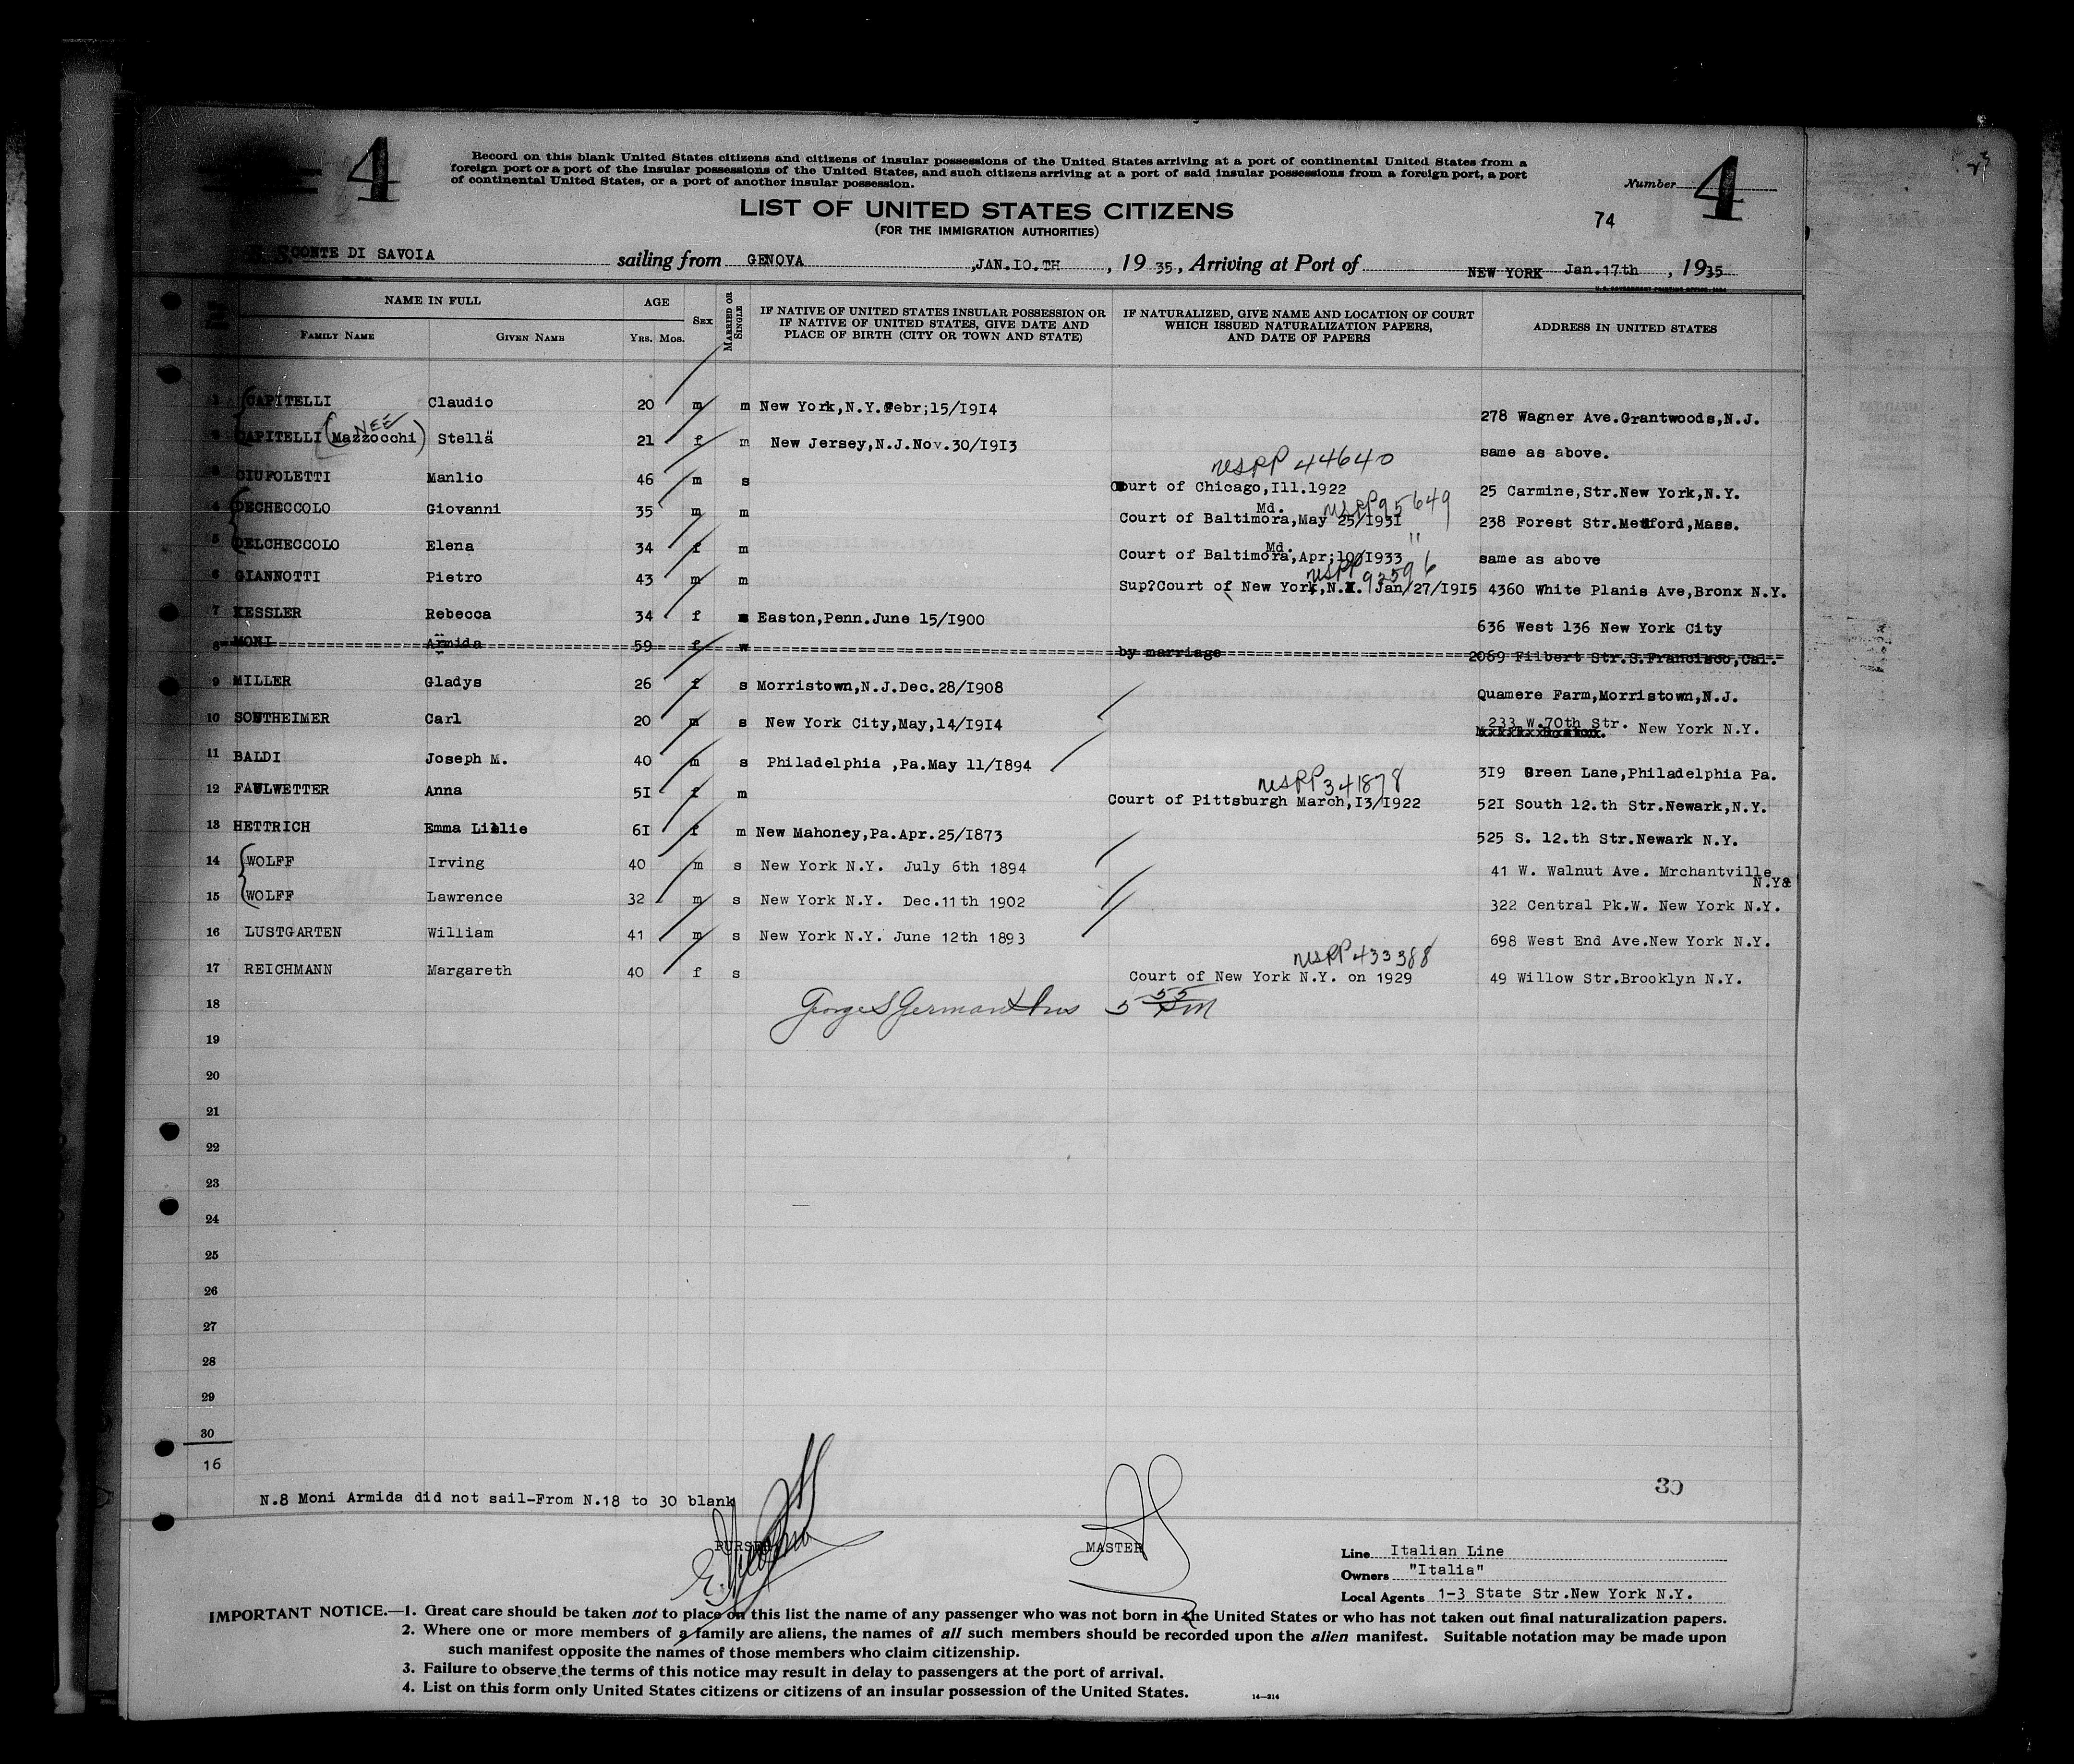 4
Record on this blank United States citizens and citizens of insular possessions of the United States arriving at a port of continental United States from a
foreign port or a port of the insular possessions of the United States, and such citizens arriving at a port of said insular possessions from a foreign port, a port
of continental United States, or a port of another insular possession.
Number 4
LIST OF UNITED STATES CITIZENS
74
(FOR THE IMMIGRATION AUTHORITIES)
CONTE DI SAVOIA sailing from GENOVA ,JAN.IO.TH , 19 35, Arriving at Port of NEW YORK Jan.17th , 1935
U.S. GOVERNMENT PRINTING OFFICE: 1934
NAME IN FULL AGE SEX MARRIED OR SINGLE IF NATIVE OF UNITED STATES INSULAR POSSESSION OR IF NATIVE OF UNITED STATES, GIVE DATE AND PLACE OF BIRTH (CITY OR TOWN AND STATE) IF NATURALIZED, GIVE NAME AND LOCATION OF COURT WHICH ISSUED NATURALIZATION PAPERS, AND DATE OF PAPERS ADDRESS IN UNITED STATES
FAMILY NAME GIVEN NAME YRS. MOS.
1 CAPITELLI Claudio 20 m m New York,N.Y.Febr;15/I9I4 278 Wagner Ave.Grantwoods,N.J.
2 CAPITELLI (NEE Mazzocchi) Stellä 21 f m New Jersey,N.J.Nov.30/I9I3 same as above.
3 CIUFOLETTI Manlio 46 m s USPP 44640 Court of Chicago,Ill.1922 25 Carmine,Str.New York,N.Y.
4 DECHECCOLO Giovanni 35 m m Court of Baltimora, Md. May 25/I93I USPP 95649 238 Forest Str.Medford,Mass.
5 DELCHECCOLO Elena 34 f m Court of Baltimora, Md. Apr;10/I933 " same as above
6 GIANNOTTI Pietro 43 m m USPP 92596 Sup?Court of New York,N.Y. Jan/27/I9I5 4360 White Planis Ave,Bronx N.Y.
7 KESSLER Rebecca 34 f s Easton,Penn.June 15/I900 636 West 136 New York City
8 MONI Armida 59 f w by marriage 2069 Filbert Str.S.Francisco,Cal.
9 MILLER Gladys 26 f s Morristown,N.J.Dec.28/I908 Quamere Farm,Morristown,N.J.
10 SONTHEIMER Carl 20 m s New York City,May,14/I9I4 233 W.70th Str. New York N.Y.
11 BALDI Joseph M. 40 m s Philadelphia ,Pa.May 11/I894 3I9 Green Lane,Philadelphia Pa.
12 FAULWETTER Anna 5I f m USPP 341878 Court of Pittsburgh March,I3/I922 52I South 12.th Str.Newark,N.Y.
13 HETTRICH Emma Lillie 6I f m New Mahoney,Pa.Apr.25/I873 525 S. 12.th Str.Newark N.Y.
14 WOLFF Irving 40 m s New York N.Y. July 6th 1894 41 W. Walnut Ave. Mrchantville N.Y&
15 WOLFF Lawrence 32 m s New York N.Y. Dec.11th 1902 322 Central Pk.W. New York N.Y.
16 LUSTGARTEN William 41 m s New York N.Y. June 12th 1893 698 West End Ave.New York N.Y.
17 REICHMANN Margareth 40 f s USPP 433388 Court of New York N.Y. on 1929 49 Willow Str.Brooklyn N.Y.
18 George S German Ins 5 55 PM
19
20
21
22
23
24
25
26
27
28
29
30
16
30
N.8 Moni Armida did not sail-From N.18 to 30 blank
PURSER MASTER
Line Italian Line
Owners "Italia"
Local Agents 1-3 State Str.New York N.Y.
IMPORTANT NOTICE.—1. Great care should be taken not to place on this list the name of any passenger who was not born in the United States or who has not taken out final naturalization papers.
2. Where one or more members of a family are aliens, the names of all such members should be recorded upon the alien manifest. Suitable notation may be made upon
such manifest opposite the names of those members who claim citizenship.
3. Failure to observe the terms of this notice may result in delay to passengers at the port of arrival.
4. List on this form only United States citizens or citizens of an insular possession of the United States.
14—214